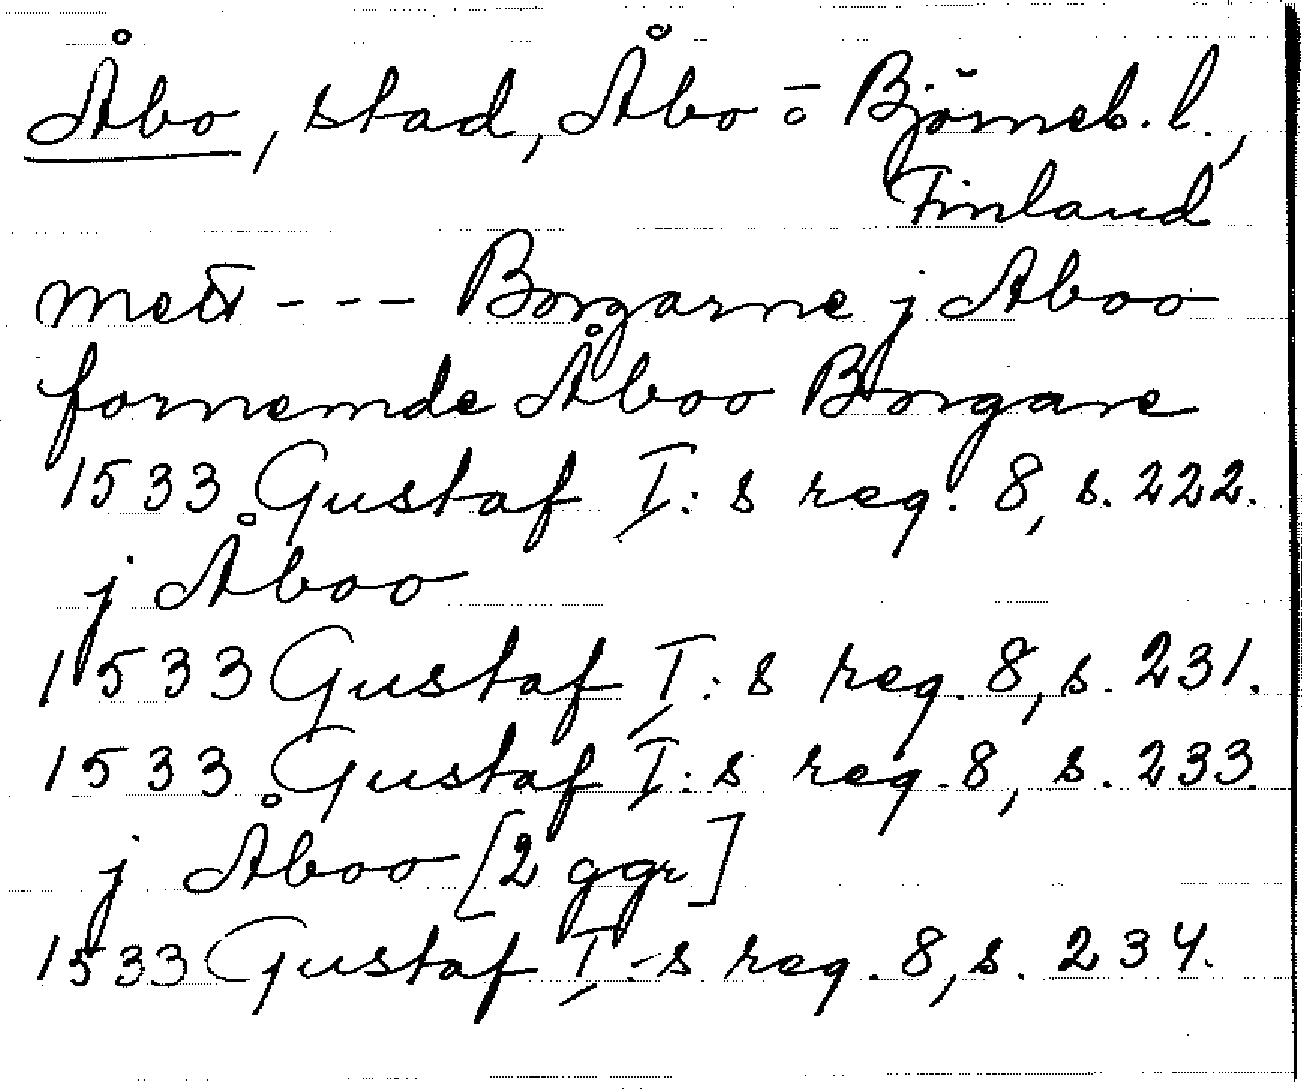 Åbo, stad, Åbo o Björneb. l.,
Finland
mett --- Borgarne j Aboo
fornemde Åboo Borgare
1533 Gustaf I:s reg. 8, s. 222.
j Åboo
1533 Gustaf I:s reg. 8, s. 231.
1533 Gustaf I:s reg. 8, s. 233.
j Åboo [2 ggr]
1533 Gustaf I:s reg. 8, s. 234.